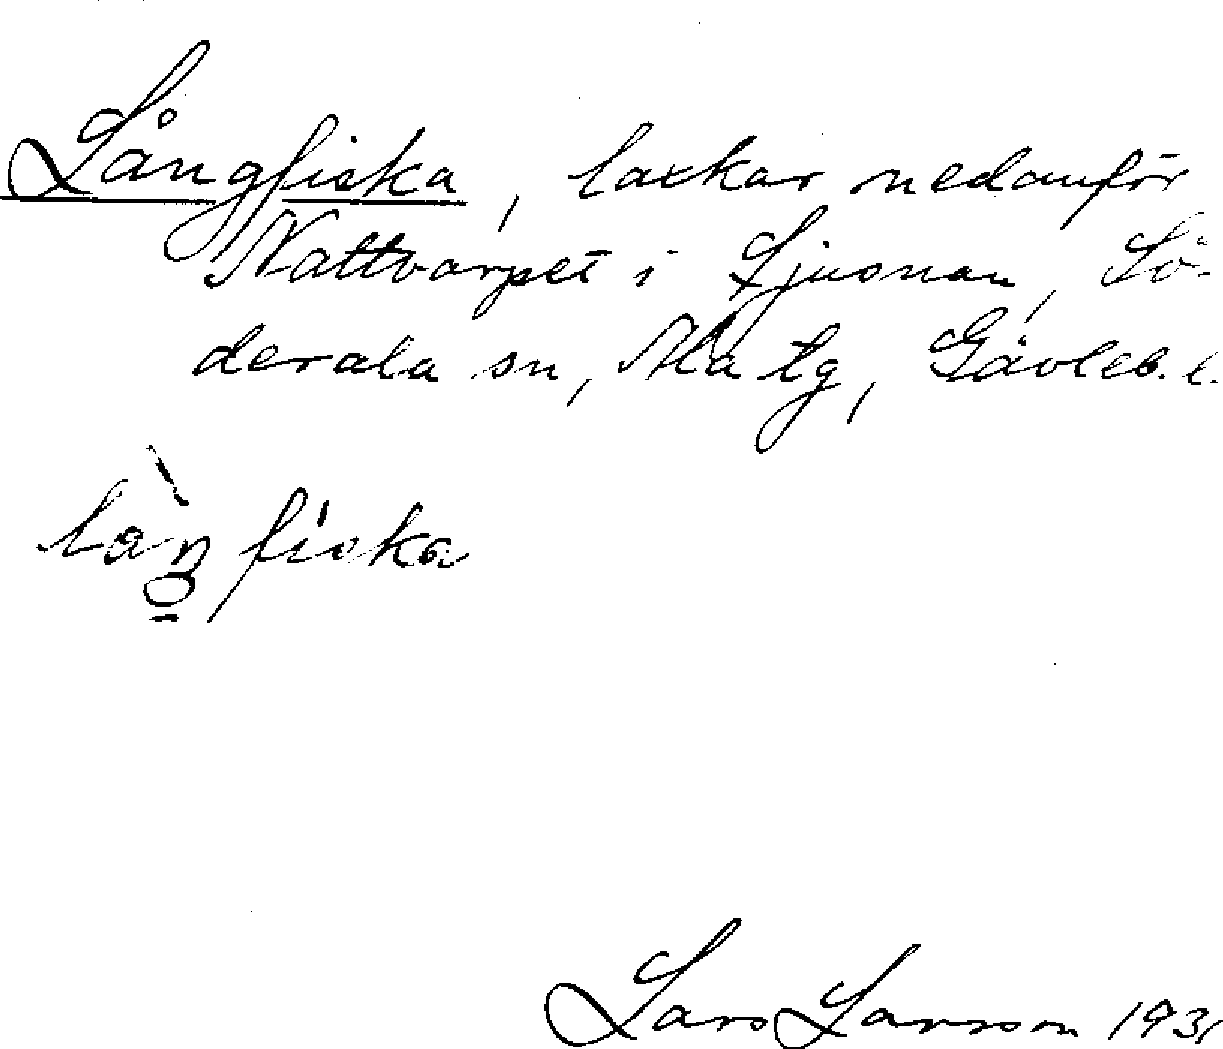 Långfiska, laxkar nedanför
Nattvarpet i Ljusnan, Sö-
derala sn, Ala tg, Gävleb. l.
làŋfiska
Lars Larsson 1931